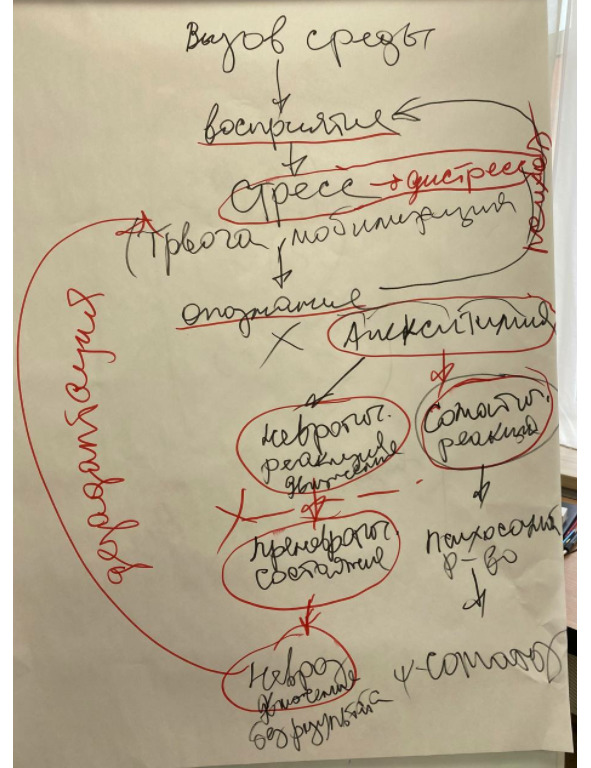 Вызов среды
восприятие
стресс → дистресс
(тревога, мобилизация
опознание
Алекситимия
X
невротич.
реакция
движение
соматич.
реакция
X
преневротич.
состояние
психосомат
р-во
невроз
движение
без результата
ψ-соматоз
дезадаптация